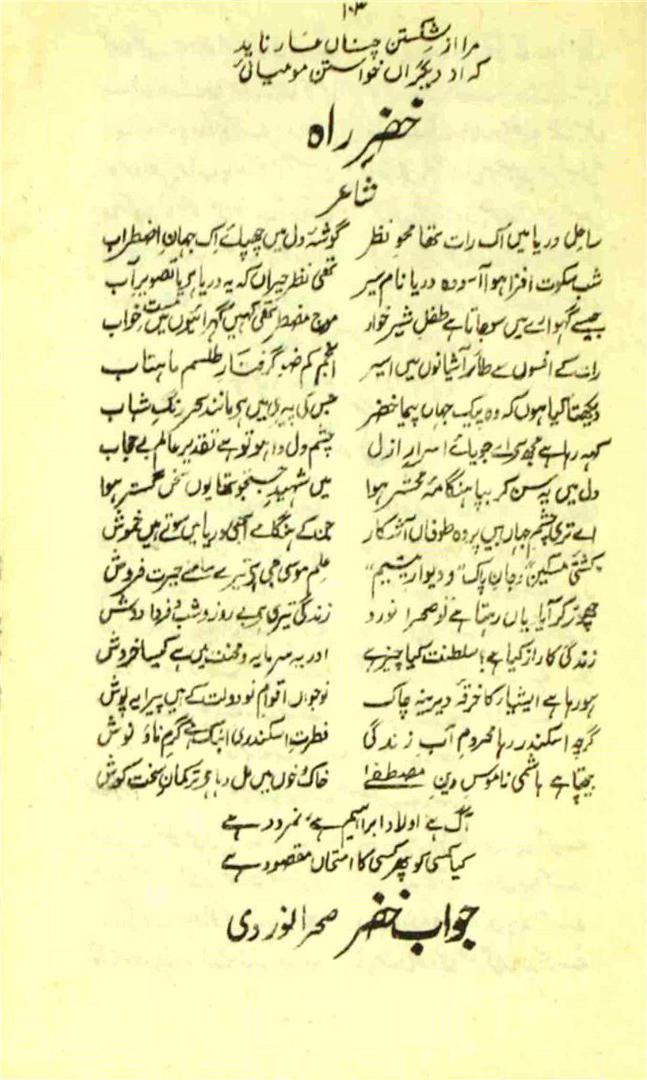 ۱۰۳
مرا از شکستن چناں عار ناید
کہ از دیگراں خواستن مومیائی
خضرِ راہ
شاعر
ساحلِ دریا میں اک رات تھا محوِ نظر گوشۂ دل میں چھپائے اِک جہانِ اضطراب
شب سکوت افزا ہوا آسودہ دریا نام سیر تھی نظر حیراں کہ یہ دریا ہے یا تصویرِ آب
جیسے گہوارے میں سو جاتا ہے طفلِ شیر خوار موجِ مضطر تھی کہیں گہرائیوں میں مستِ خواب
رات کے افسوں سے طائر آشیانوں میں اسیر انجمِ کم ضو گرفتارِ طلسمِ ماہتاب
دیکھتا کیا ہوں کہ وہ پیکِ جہاں پیما خضر جس کی پیری میں ہے مانندِ سحر رنگِ شباب
کہہ رہا ہے مجھ سے اے جویائے اسرارِ ازل چشمِ دل وا ہو تو ہے تقدیرِ عالم بے حجاب
دل میں یہ سن کر بپا ہنگامۂ محشر ہوا میں شہیدِ جستجو تھا یوں سخن گستر ہوا
اے تری چشمِ جہاں بیں پر وہ طوفاں آشکار جن کے ہنگامے ابھی دریا میں سوتے ہیں خموش
"کشتیٔ مسکین" و "جانِ پاک" و "دیوارِ یتیم" علمِ موسیٰ بھی ہے تیرے سامنے حیرت فروش
چھوڑ کر آبادیاں رہتا ہے تو صحرا نورد زندگی تیری ہے بے روز و شب و فردا و دوش
زندگی کا راز کیا ہے؟ سلطنت کیا چیز ہے اور یہ سرمایہ و محنت میں ہے کیسا خروش
ہو رہا ہے ایشیا کا خرقۂ دیرینہ چاک نوجواں اقوامِ نو دولت کے ہیں پیرایہ پوش
گرچہ اسکندر رہا محرومِ آبِ زندگی فطرتِ اسکندری ابتک ہے گرمِ ناؤ نوش
بیچتا ہے ہاشمی ناموسِ دینِ مصطفیٰ خاک و خوں میں مل رہا ہے ترکمانِ سخت کوش
آگ ہے اولادِ ابراہیم ہے، نمرود ہے
کیا کسی کو پھر کسی کا امتحاں مقصود ہے
جوابِ خضر صحرا نوردی